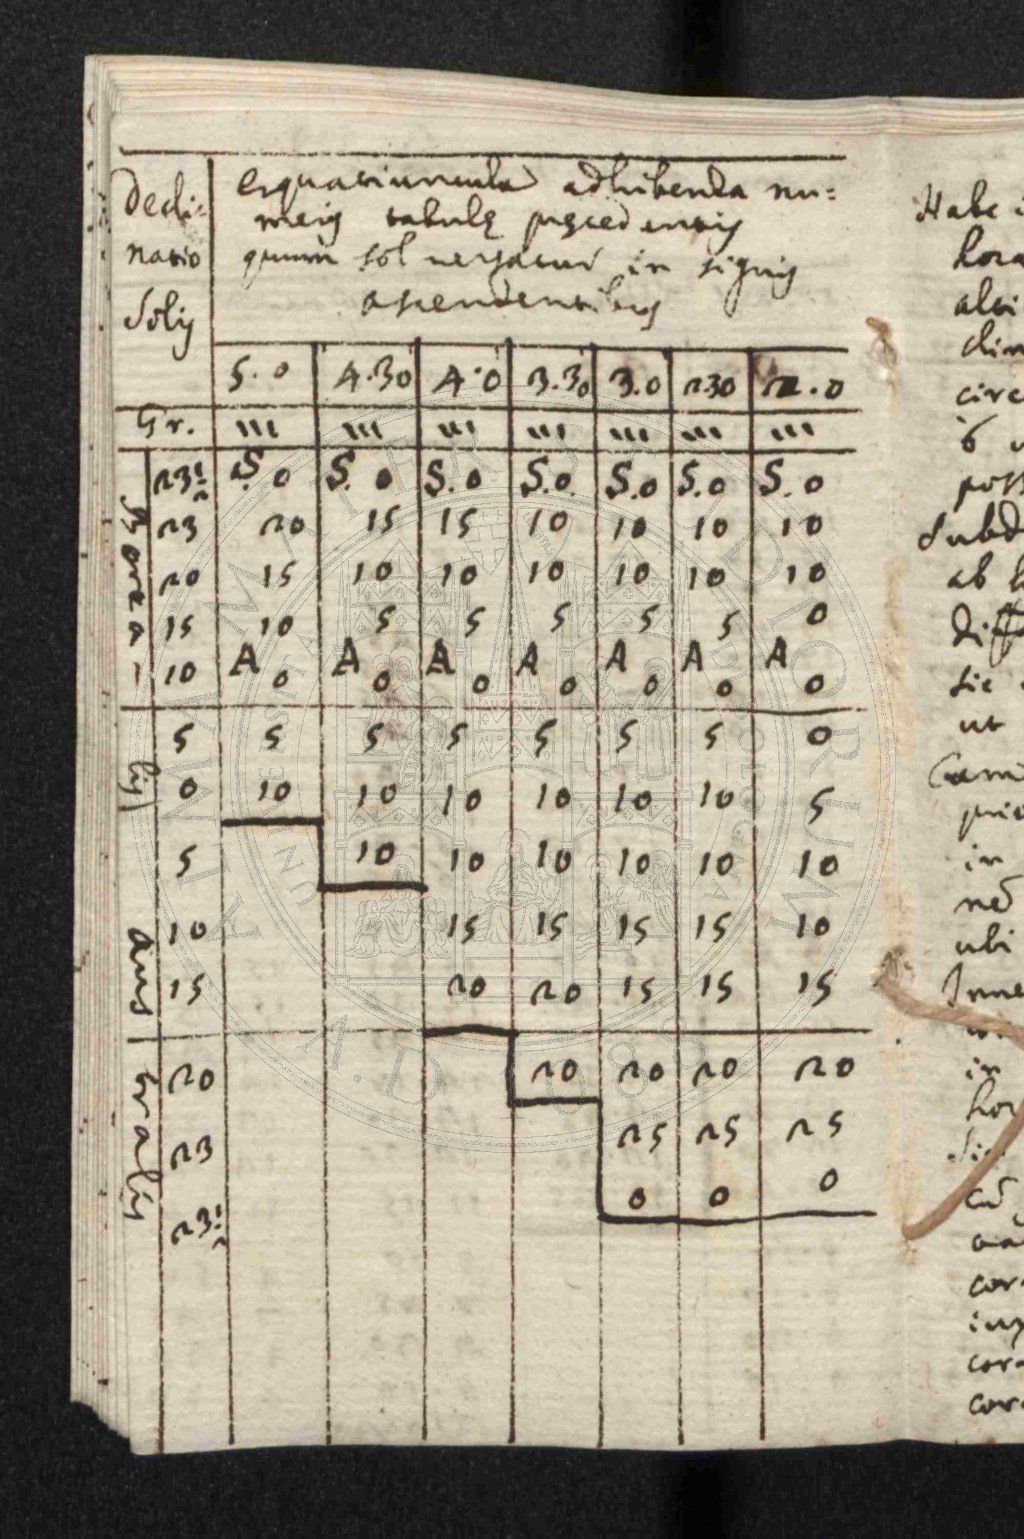 Decli=
natio
Solis
equatiuncula adhibenda nu=
meris tabulę pręcedentis
quum sol versatur in signis
ascendentibus
5.0 4.30 4.0 3.30 3.0 2.30 2.0
Gr. ''' ''' ''' ''' ''' ''' '''
Borealis
23½ S. 0 S. 0 S. 0 S. 0 S. 0 S. 0 S. 0
23 20 15 15 10 10 10 10
20 15 10 10 10 10 10 10
15 10 5 5 5 5 5 0
10 A 0 A 0 A 0 A 0 A 0 A 0 A 0
5 5 5 5 5 5 5 0
0 10 10 10 10 10 10 5
australis
5 10 10 10 10 10 10
10 15 15 15 15 10
15 20 20 15 15 15
20 20 20 20 20
23 25 25 25
23½ 0 0 0
Habe
hora
alti
clin
circ
6
poss
Subd
ab
diff
sic
ut
in
ubi
in
hor
Sic
cor
cor
cor